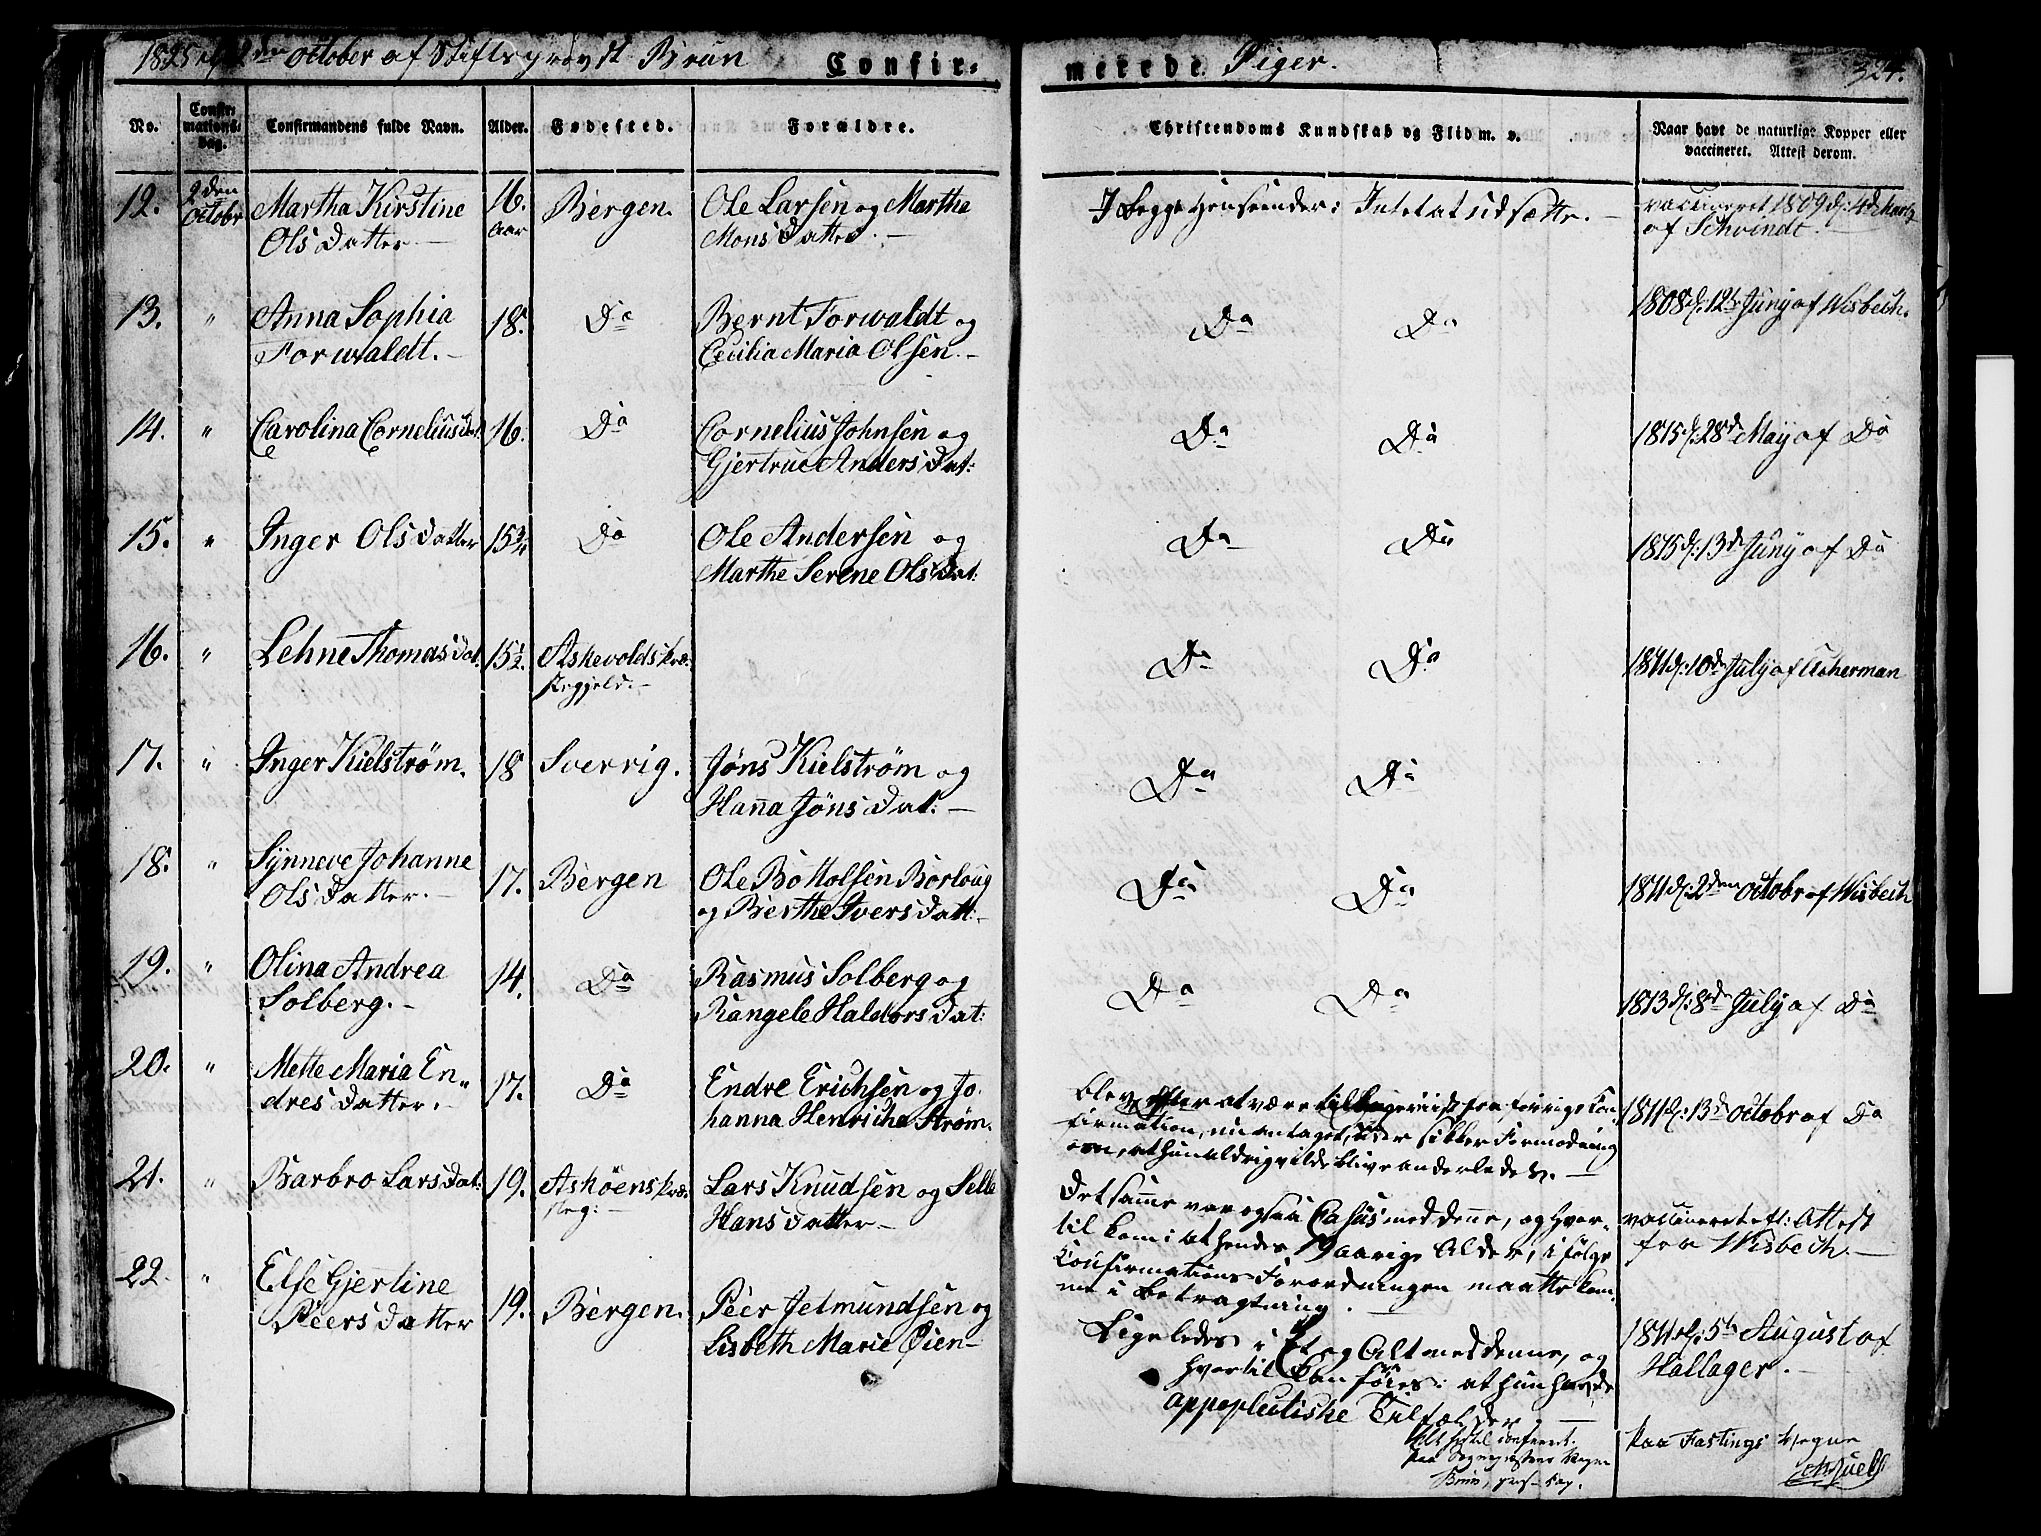 1825 d: 2den October af Stiftsprovst Brun
Confir-
merede Piger.
324.
No.
Confir-
mations-
dag.
Confirmandens fulde Navn.
Alder.
Fødested.
Forældre.
Christendoms Kundskab og Flid m. v.
Naar havt de naturlige Kopper eller
vaccineret. Attest derom.
12.
2den
Octobr
Martha Kirstine
Ols Datter
16.
Aar
Bergen.
Ole Larsen og Marthe
Mons Datter.
I begge Henseender: Intet at udsætte.
vaccineret 1809 d: 4de Martz
af Schvindt.
13.
"
Anna Sophia
Forwaldt.
18.
Do
Bernt Forwaldt og
Cecilia Maria Olsen.
Do
Do
1808 d: 12te Juny af Wisbech.
14.
"
Carolina Cornelius Dat:
16.
Do
Cornelius Johnsen og
Gjertrue Anders Dat:
Do
Do
1815 d: 28de May af Do
15.
"
Inger Ols Datter
15 3/4
Do
Ole Andersen og
Marthe Serene Ols Dat:
Do
Do
1815 d: 13de Juny af Do
16.
"
Lehne Thomas Dat:
15 1/2.
Askevolds Præ-
stegjeld.
Do
Do
1811 d: 10de July af Ackerman
17.
"
Inger Kielstrøm.
18
Sverrig.
Jøns Kielstrøm og
Hanna Jøns Dat:
Do
Do
18.
"
Synneve Johanne
Ols Datter.
17.
Bergen
Ole Bottolfsen Borloug
og Berthe Ivers Datt:
Do
Do
1811 d: 2den Octobr af Wisbech
19.
"
Olina Andrea
Solberg.
14.
Do
Rasmus Solberg og
Rangele Haldors Dat:
Do
Do
1813 d: 8de July af Do
20.
"
Mette Maria En-
dres Datter.
17.
Do
Endre Erichsen og Jo-
hanna Henricha Strøm.
blev efter at være tilbageviist fra forrige Con-
firmation, nu antaget, under sikker Formodning
om, at hun aldrig vilde blive anderledes.
1811 d: 13de Octobr af Do
21.
"
Barbro Lars Dat:
19.
Askøens Præ-
steg:
Lars Knudsen og Selle
Hans Datter
Det samme var ogsaa Casus med denne, og hver-
til kom i at hendes 19 aarige Alder, i følge
Confirmations Forordningen maatte kom-
me i Betragtning.
vaccineret eft: Attest
fra Wisbech.
22.
"
Else Gjertine
Peers Datter
19.
Bergen.
Peer Jetmundsen og
Lisbeth Marie Øien
Ligeledes i Et og Alt med denne, og
hvortil kan føies: at hun havde
appoplectiske Tilfælder
1811 d: 5te August af
Hallager.
paa Sognepræstens Vegne
Brun,
Paa Fastings Vegne